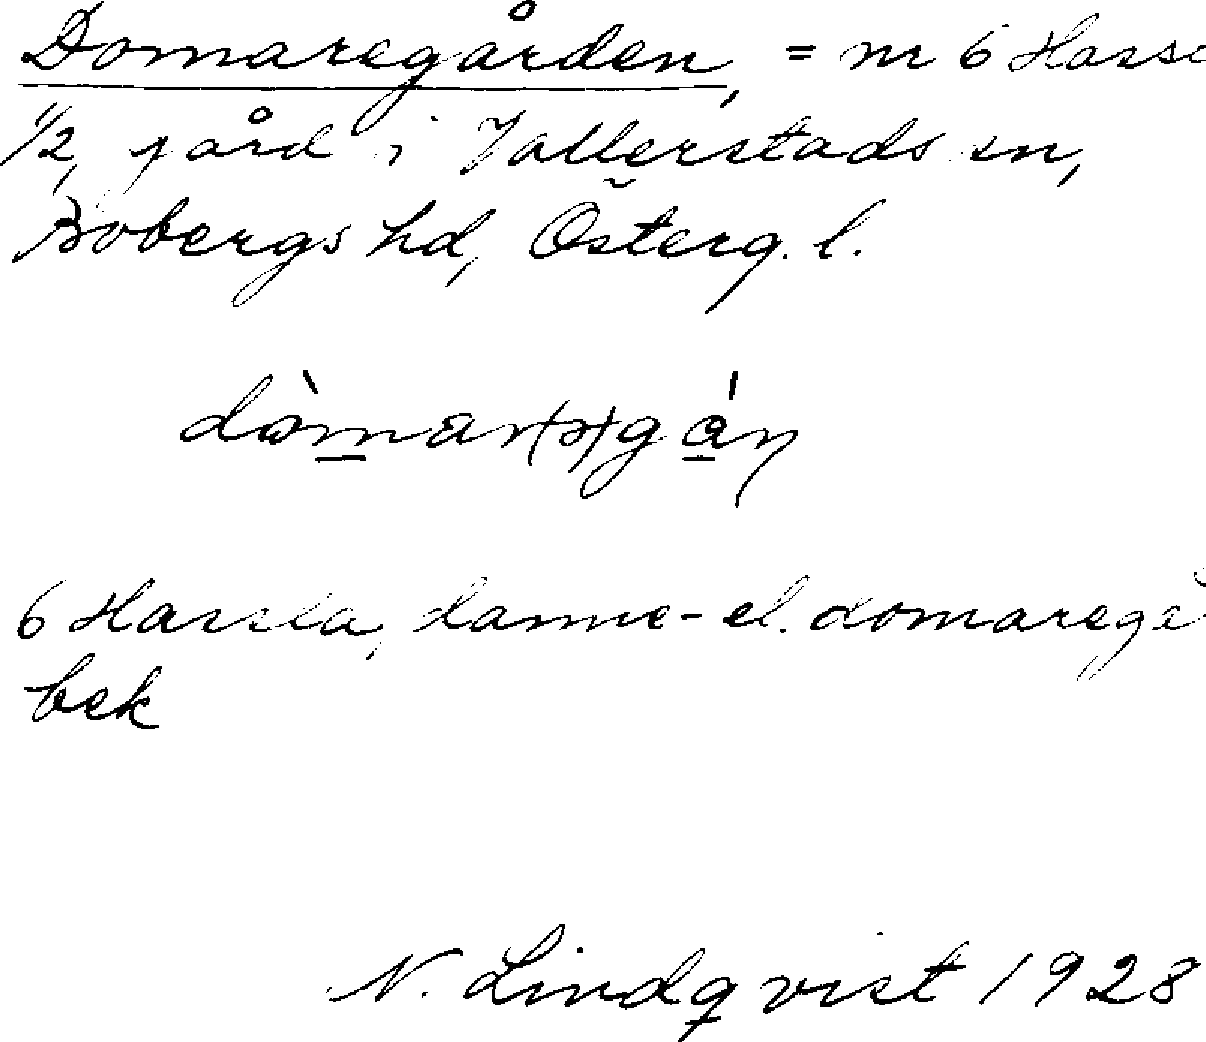 Domaregården, = nr 6 Hassl
1/2, gård i Vallerstads sn,
Bobergs hd, Österg. l.
6 Hassla, danne- el. domaregå
bek
N. Lindqvist 1928